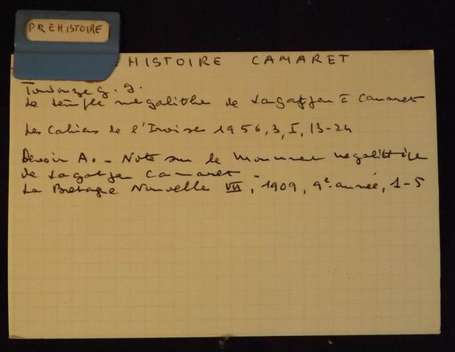 PREHISTOIRE
HISTOIRE CAMARET
Toudouze G. G.
Le temple megalithe de Lagatjar à Camaret
Les Cahiers de l'Iroise 1956, 3, I, 13-24
Devoir A. - Note sur le Monument megalithique
de Lagatjar Camaret -
La Bretagne Nouvelle VII, 1909, 9e année, 1-5